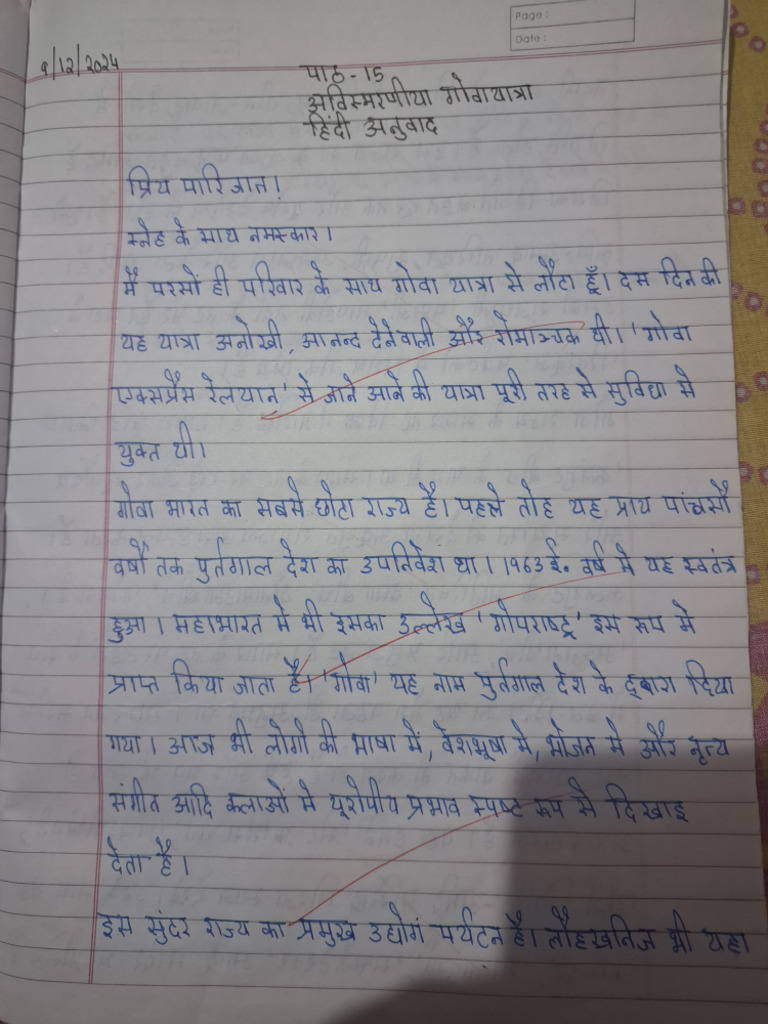 Page:
Date:
9/12/2024
पाठ-15
अविस्मरणीया गोवायात्रा
हिंदी अनुवाद
प्रिय पारिजात!
स्नेह के साथ नमस्कार।
मैं परसों ही परिवार के साथ गोवा यात्रा से लौटा हूँ। दस दिन की
यह यात्रा अनोखी, आनन्द देनेवाली और रोमाञ्चक थी। 'गोवा
एक्सप्रैस रेलयान' से जाने आने की यात्रा पूरी तरह से सुविधा से
युक्त थी।
गोवा भारत का सबसे छोटा राज्य है। पहले तोह यह प्राय पांचसौ
वर्षों तक पुर्तगाल देश का उपनिवेश था। 1963 ई. वर्ष मे यह स्वतंत्र
हुआ। महाभारत मे भी इसका उल्लेख 'गोपराष्ट्र' इस रूप मे
प्राप्त किया जाता है। 'गोवा' यह नाम पुर्तगाल देश के द्वारा दिया
गया। आज भी लोगो की भाषा में, वेशभूषा मे, भोजन मे और नृत्य
संगीत आदि कलाओं मे यूरोपीय प्रभाव स्पष्ट रूप से दिखाइ
देता है।
इस सुंदर राज्य का प्रमुख उद्योग पर्यटन है। लौहखनिज भी यहा